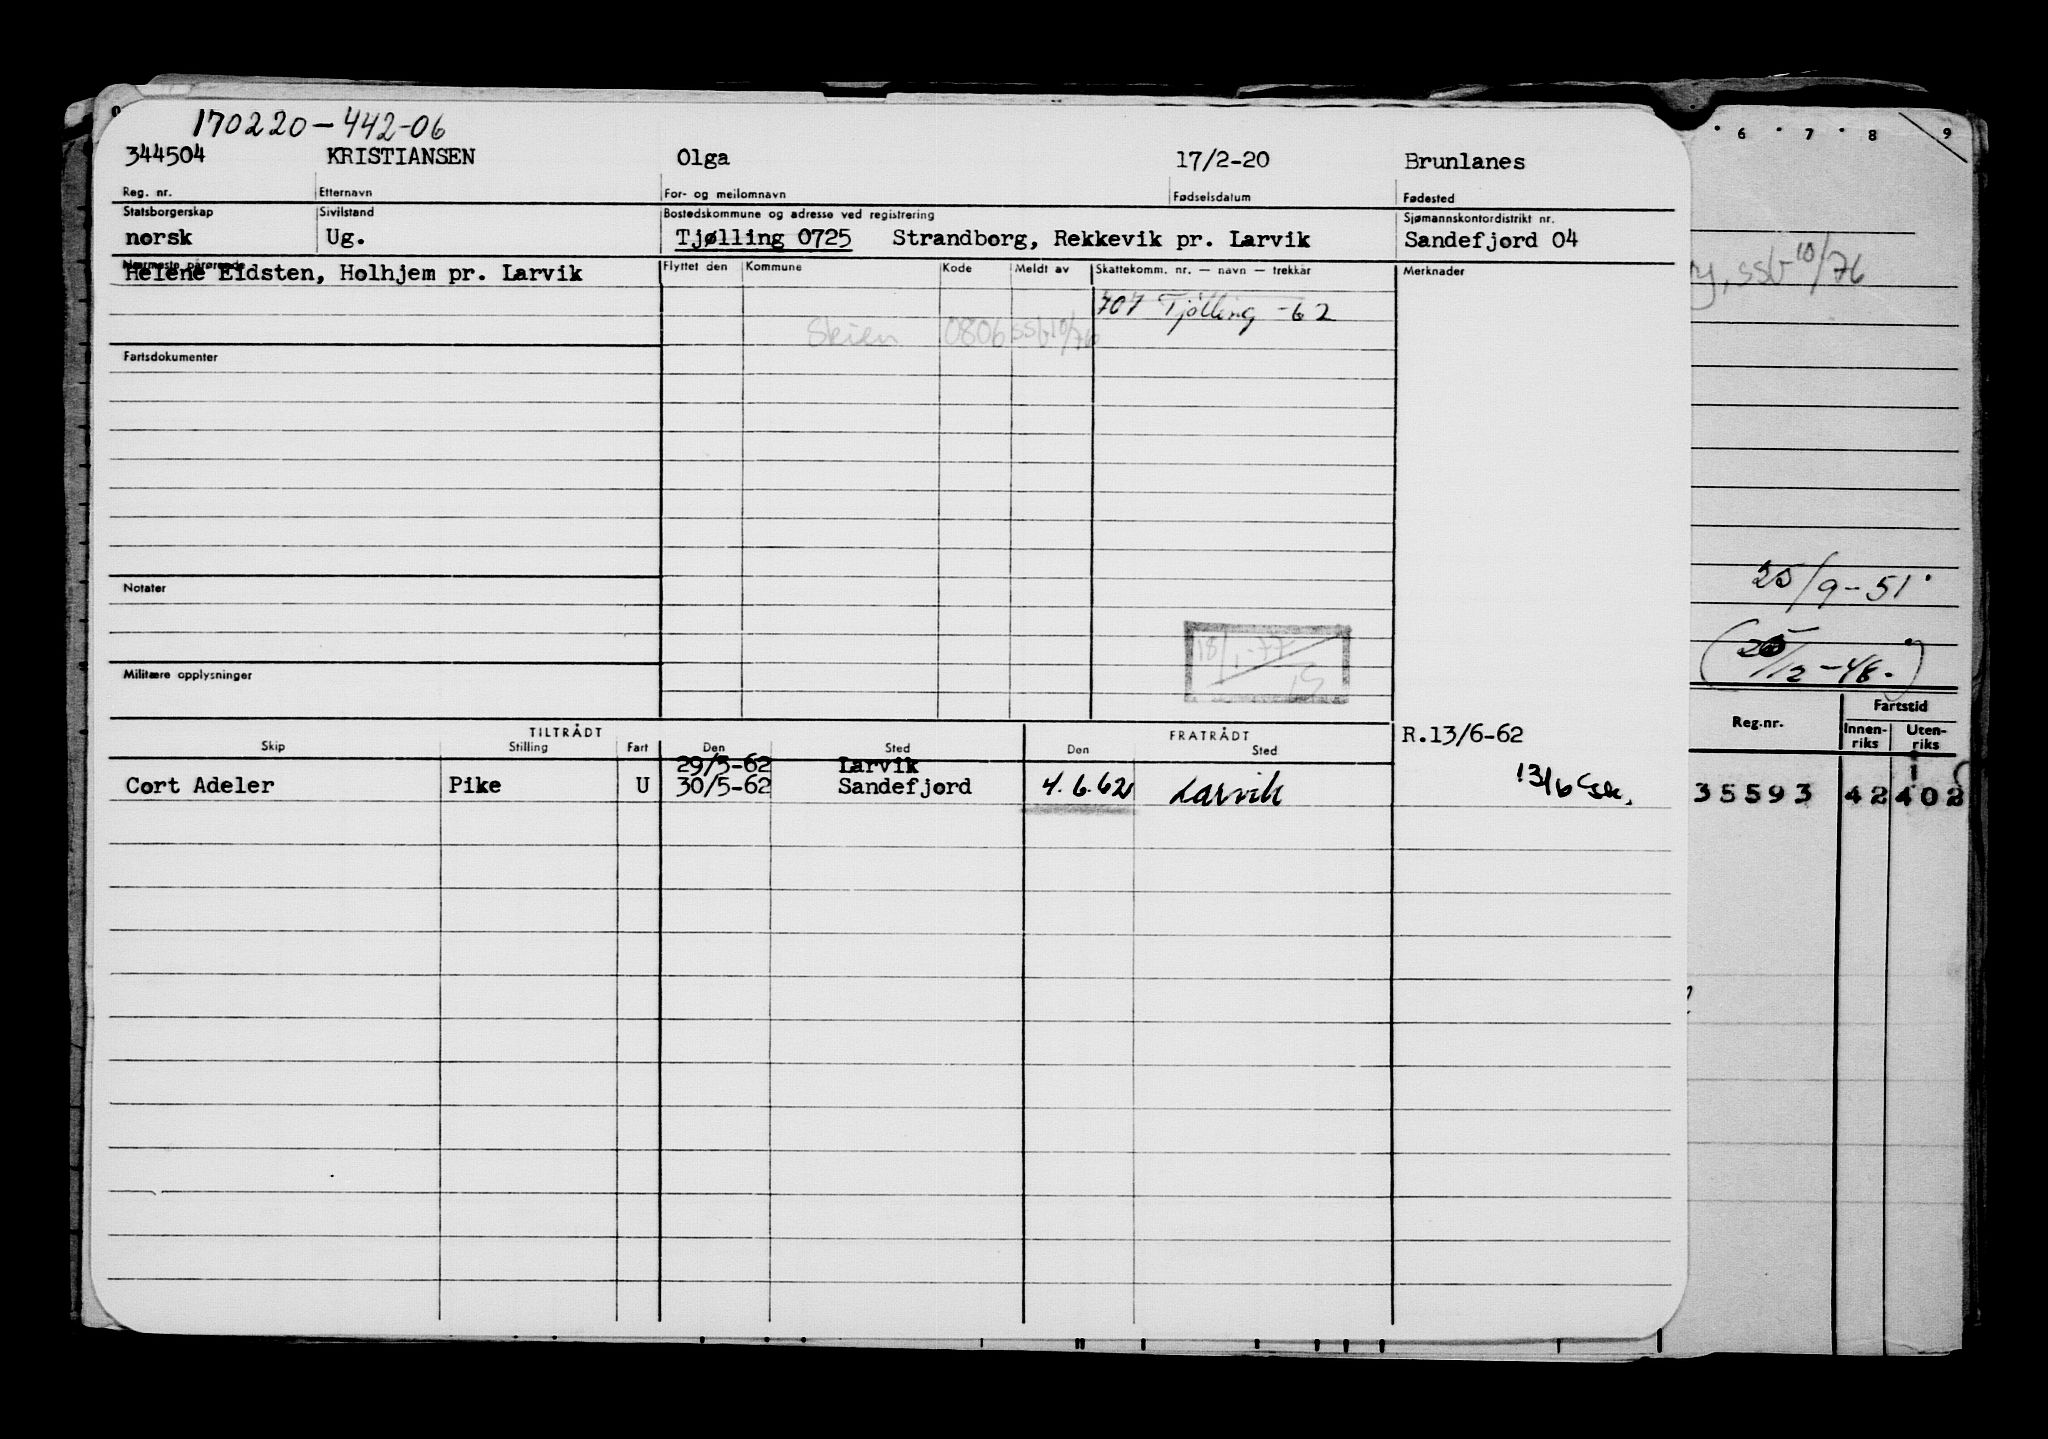 170220-442-06
344504 KRISTIANSEN Olga 17/2-20 Brunlanes
Reg. nr. Etternavn For- og mellomnavn Fødselsdatum Fødested
Statsborgerskap Sivilstand Bostedskommune og adresse ved registrering Sjømannskontordistrikt nr.
norsk Ug. Tjølling 0725 Strandborg, Rekkevik pr. Larvik Sandefjord 04
Nærmeste pårørende Flyttet den Kommune Kode Meldt av Skattekomm. nr. — navn — trekkår Merknader
Helene Eidsten, Holhjem pr. Larvik
707 Tjølling -62
Skien 0806 SSb 10/76
Fartsdokumenter
Notater
Militære opplysninger
18/1-77
TILTRÅDT FRATRÅDT R.13/6-62
Skip Stilling Fart Den Sted Den Sted
29/5-62 Larvik
Cort Adeler Pike U 30/5-62 Sandefjord 4.6.62 Larvik 13/6
6 7 8 9
ssb 10/76
25/9-51
Reg.nr. Fartstid
Innen-riks Uten-riks
35593 42 402